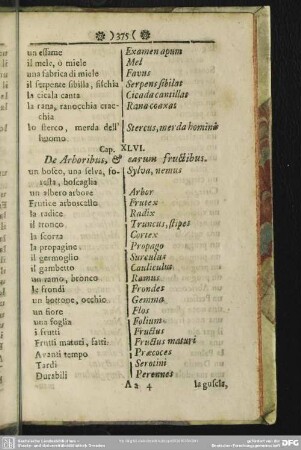 ❁ ) 375 ( ❁
un essame Examen apum
il mele, o miele Mel
una fabrica di miele Favus
il serpenze sibilla, fischia Serpens sibilat
la cicala canta Cicada cantillat
la rana, ranocchia crac-
chia Rana coaxat
lo sterco, merda dell'
huomo Stercus, merda hominis
Cap. XLVI.
De Arboribus, & earum fructibus.
un bosco, una selva, fo-
resta, boscaglia Sylva, nemus
un albero arbore Arbor
Frutice arboscello Frutex
la radice Radix
il tronco Truncus, stipes
la scorza Cortex
la propagine Propago
il germoglio Surculus
il gambetto Cauliculus
un ramo, bronco Ramus
le frondi Frondes
un bottone, occhio Gemma
un fiore Flos
una foglia Folium
i frutti Fructus
Frutti maturi, fatti Fructus maturi
Avanti tempo Præcoces
Tardi Serotini
Durabili Perennes
A a 4 la guscia,